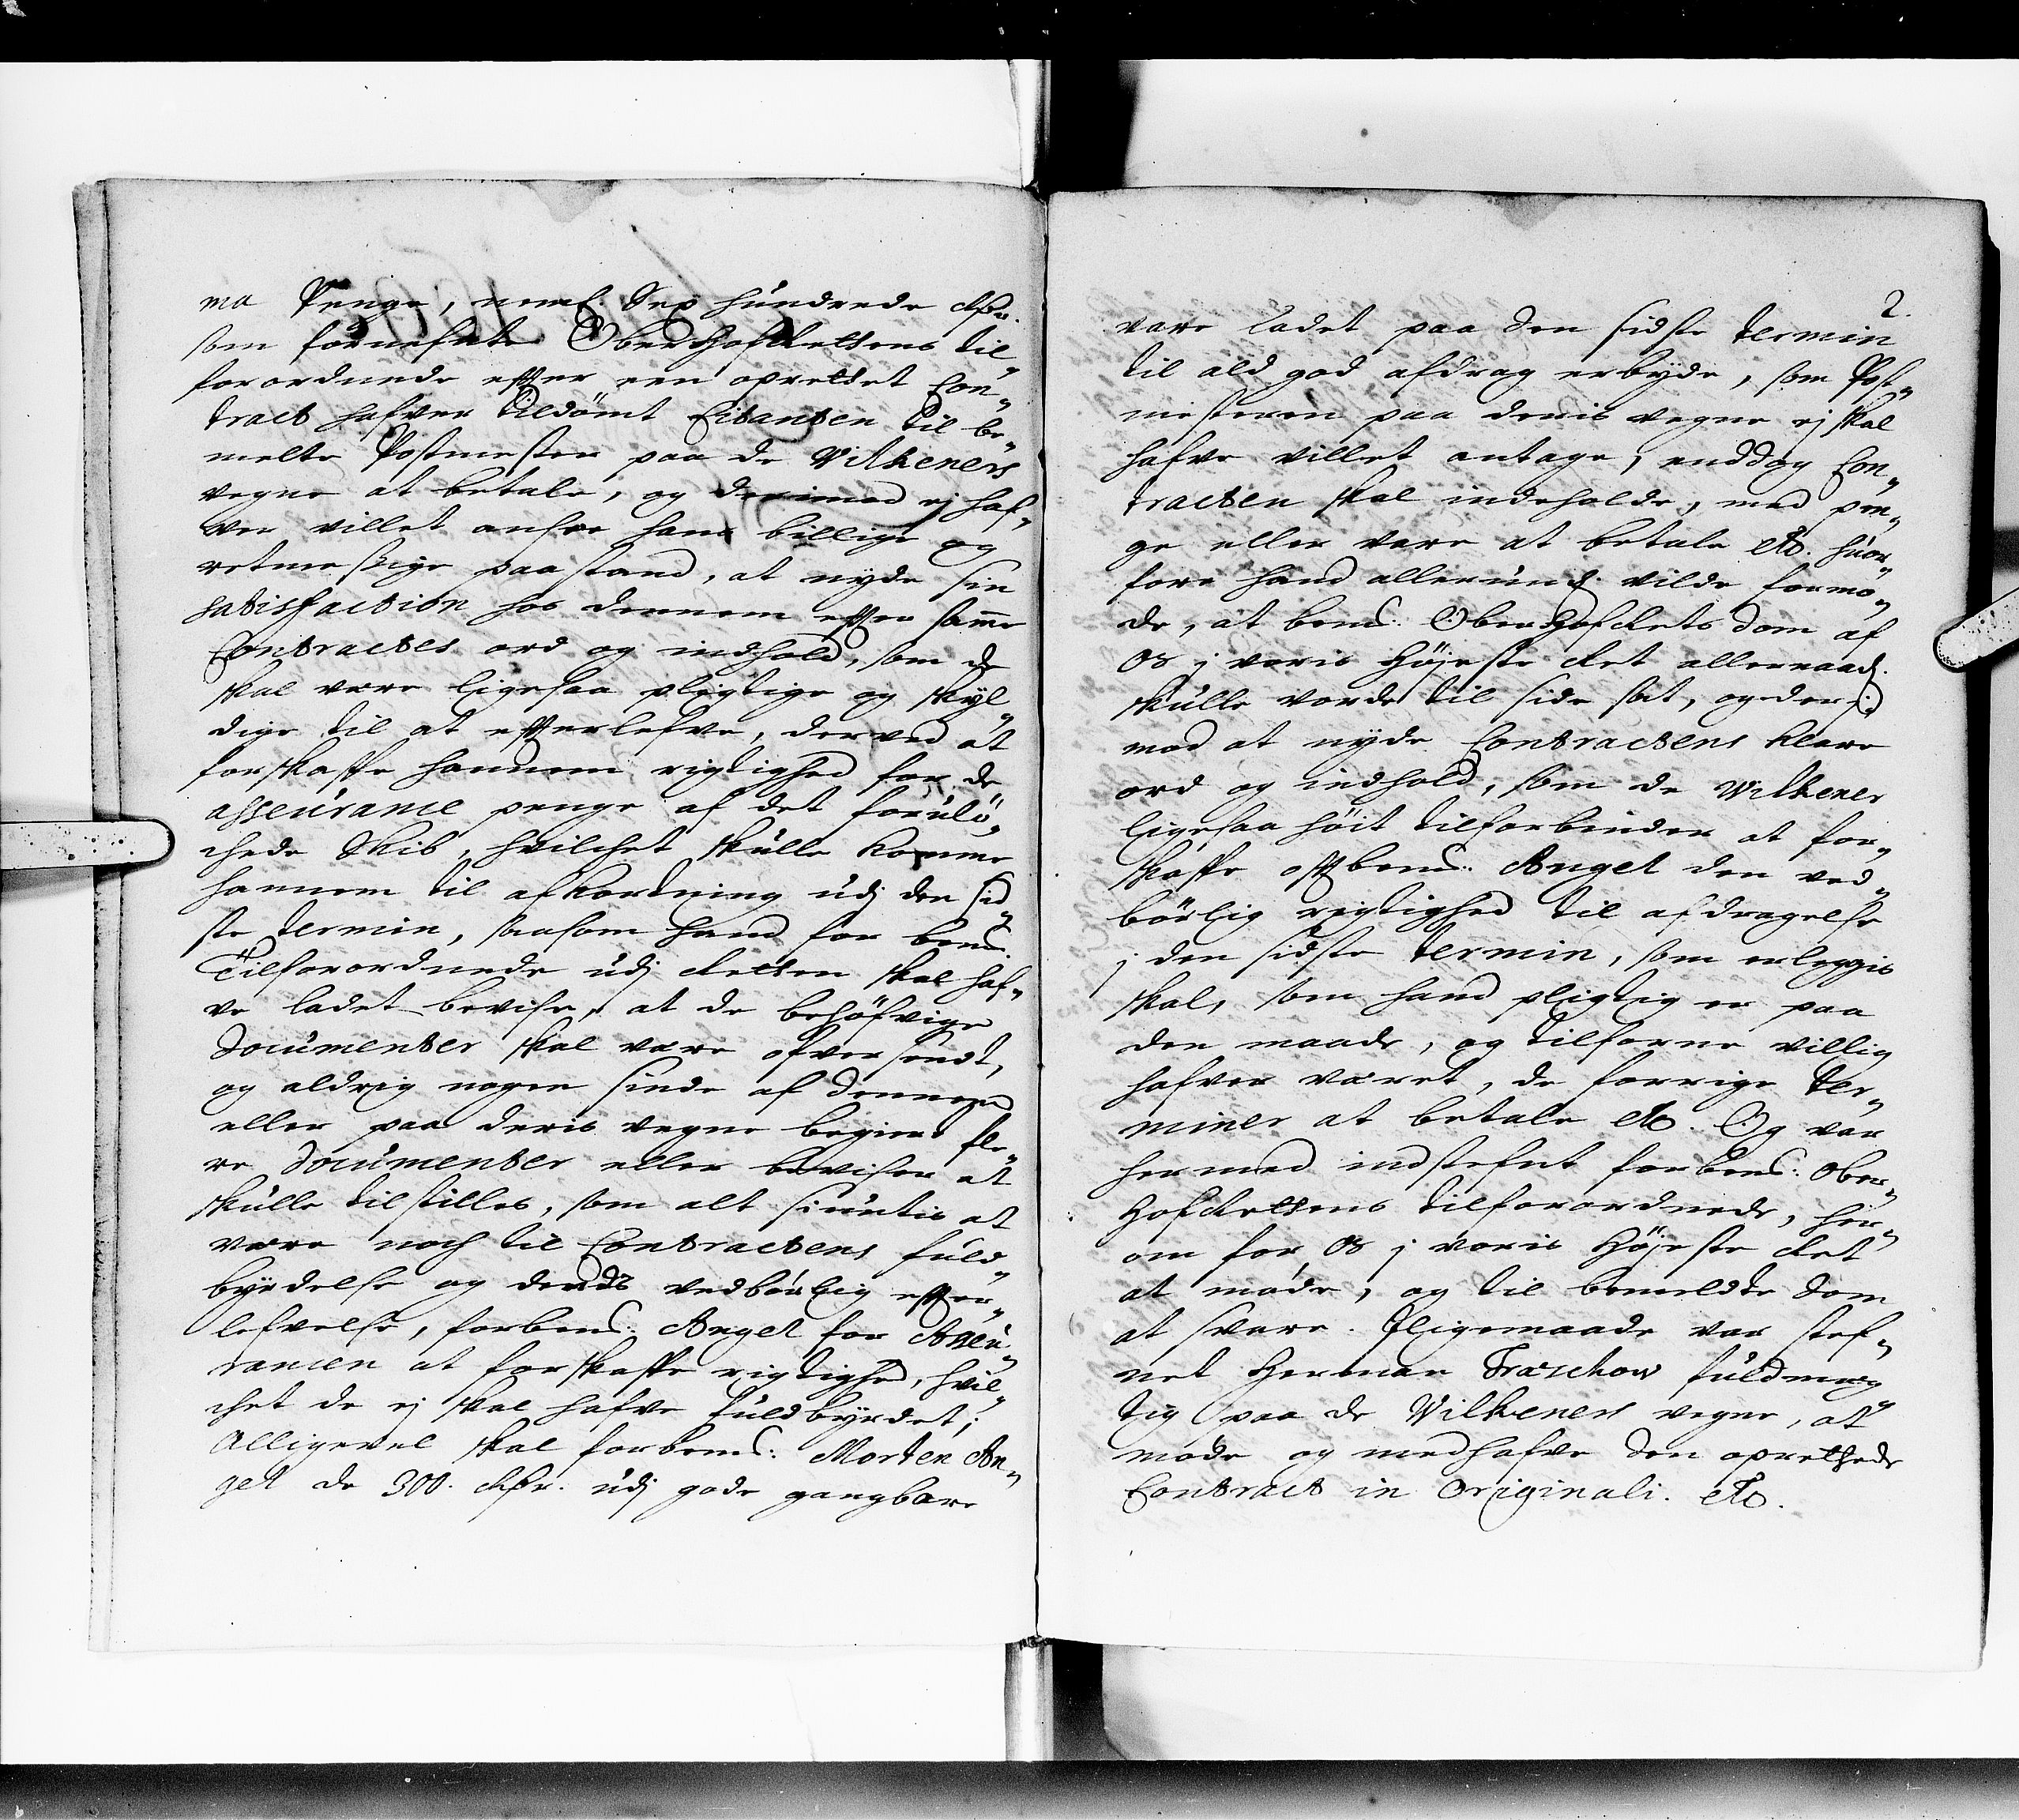 ma Penge, neml. Sex hundrede Rdr.
som fornefnte OberHofRettens til„
forordnede efter een oprettet Con„
tract hafver tildömt Citanten til be„
melte Postmester paa de Wilkeners
vegne at betale, og derimod ej haf„
ver villet ansee hans billige og
retmessige paastand, at nyde sin
satisfaction hos dennem efter samme
Contractes ord og indhold, som de
skal være ligesaa pligtige og skyl„
dige til at efterlefve, derved at
forskaffe hannem rigtighed for de
asseurance penge af det forulö„
chede Skib, hvilchet skulle komme
hannem til afkordning udj den sid„
ste Termin, saasom hand for bemt.
Tilforordnede udj Retten skal haf„
ve ladet bevise, at de behöfvige
Documenter skal være ofversendt,
og aldrig nogen sinde af dennem
eller paa deris vegne begiert fle„
re Documenter eller beviser at
skulle tilstilles, som alt siuntis at
være noch til Contractens fuld„
byrdelse og dends vedbörlig efter„
lefvelse, forbemt: Angel for Asseu„
rancen at forskaffe rigtighed, hvil„
chet de ej skal hafve fuldbyrdet;
Alligevel skal forbemt: Morten An„
gel de 300. Rdr. udj gode gangbare
2.
vare ladet paa den sidste Termin
til ald god afdrag erbyde, som Post„
mesteren paa deris vegne ej skal
hafve villet antage, enddog Con„
tracten skal indeholde, med pen„
ge eller vare at betale etc. Huor„
fore hand allerund. vilde formo„
de, at bemt: OberHofRets Dom af
Os j voris Höjeste Ret allernaad.
skulle vorde til side sat, og der„
mod at nyde Contractens klare
ord og indhold, som de Wilkener
ligesaa höit tilforbinder at for„
skaffe oftbemt: Angel den ved„
börlig rigtighed til afdragelse
j den sidste Termin, som erleggis
skal, som hand pligtig er paa
den maade, og tilforne villig
hafver været, de forrige Ter„
miner at betale etc. Og var
hermed indstefnt forbemt: Ober„
HofRettens tilforordnede, her„
om for Os j voris Höjeste Ret
at möde, og til bemeldte Dom
at svare. Iligemaade var stef„
net Herman Traschow fuldmeg„
tig paa de Wilkeners vegne, at
möde og medhafve den oprettede
Contract in Originali. etc.